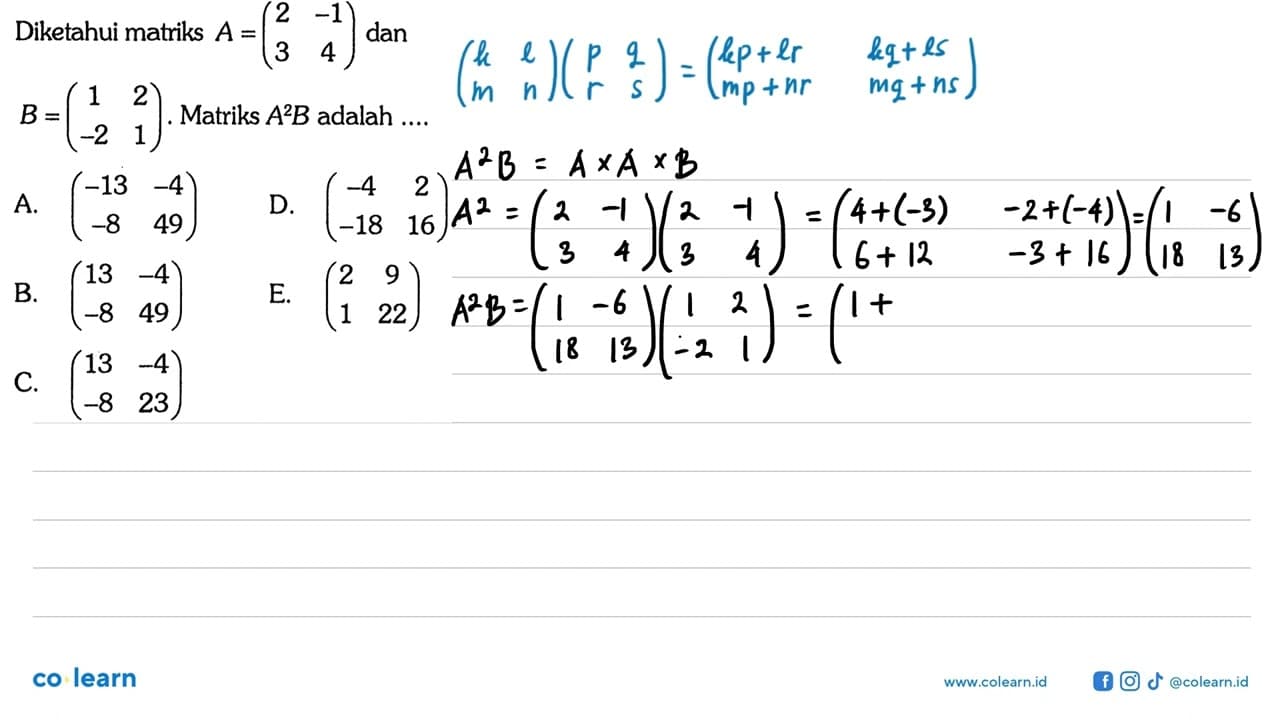 Diketahui matriks A = (2 -1
3 4) dan
B = (1 2
-2 1). Matriks A²B adalah ....
A. (-13 -4
-8 49)
B. (13 -4
-8 49)
C. (13 -4
-8 23)
D. (-4 2
-18 16)
E. (2 9
1 22)
(k l
m n)(p q
r s) = (kp + lr kq + ls
mp + nr mq + ns)
A²B = A × A × B
A² = (2 -1
3 4)(2 -1
3 4) = (4+(-3) -2+(-4)
6+12 -3+16) = (1 -6
18 13)
A²B = (1 -6
18 13)(1 2
-2 1) = (1 +
co learn
www.colearn.id
@colearn.id